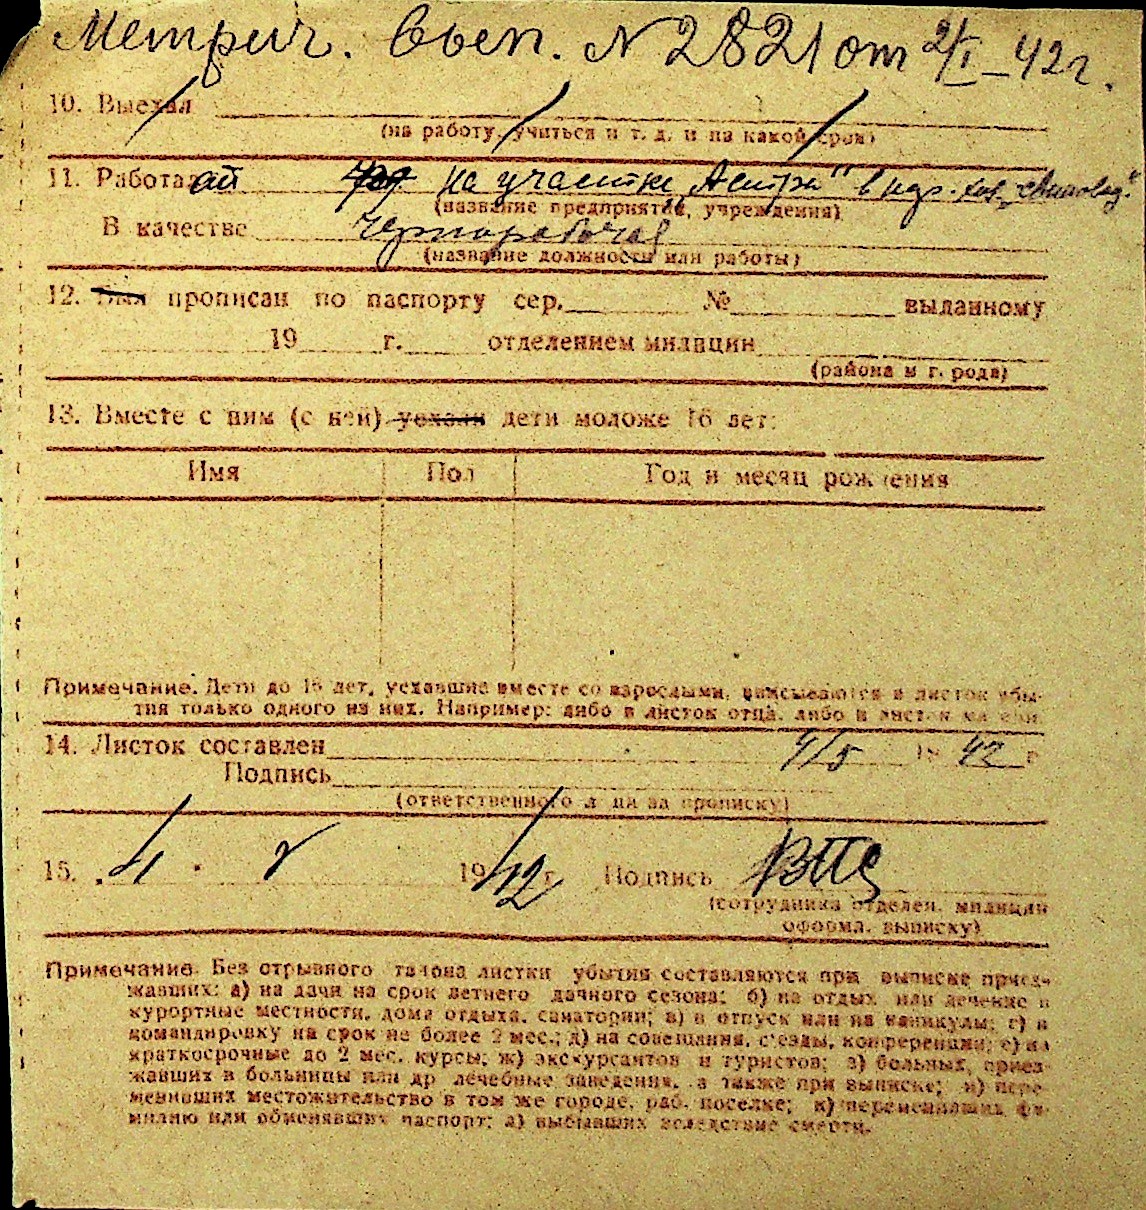 Метрич. Выеп. № 2821 от 2/I – 42 г.
10. Выехал
(на работу, учиться и т. д. и на какой срок)
11. Работал на участке "Астра" в
(название предприятия, учреждения)
В качестве чернорабочая
(название должности или работы)
12. Был прописан по паспорту сер. № выданному
19 г. отделением милиции
(района и города)
13. Вместе с ним (с ней) уехали дети моложе 16 лет:
Имя Пол Год и месяц рождения
Примечание. Дети до 16 лет, уехавшие вместе со взрослыми, вписываются в листок убы-
тия только одного из них. Например: либо в листок отца, либо в листок матери.
14. Листок составлен 4/5 19 42 г
Подпись
(ответственного лица за прописку)
15. 4 19 42 г. Подпись
(сотрудника отделен. милиции
оформл. выписку)
Примечание. Без отрывного талона листки убытия составляются при выписке приез-
жавших: а) на дачи на срок летнего дачного сезона; б) на отдых или лечение в
курортные местности, дома отдыха, санатории; в) в отпуск или на каникулы; г) в
командировку на срок не более 2 мес.; д) на совещания, съезды, конференции; е) на
краткосрочные до 2 мес. курсы; ж) экскурсантов и туристов; з) больных, приез-
жавших в больницы или др лечебные заведения, а также при выписке; и) пере-
менивших местожительство в том же городе, раб. поселке; к) переменивших фа-
милию или обменявших паспорт; л) выбывших вследствие смерти.